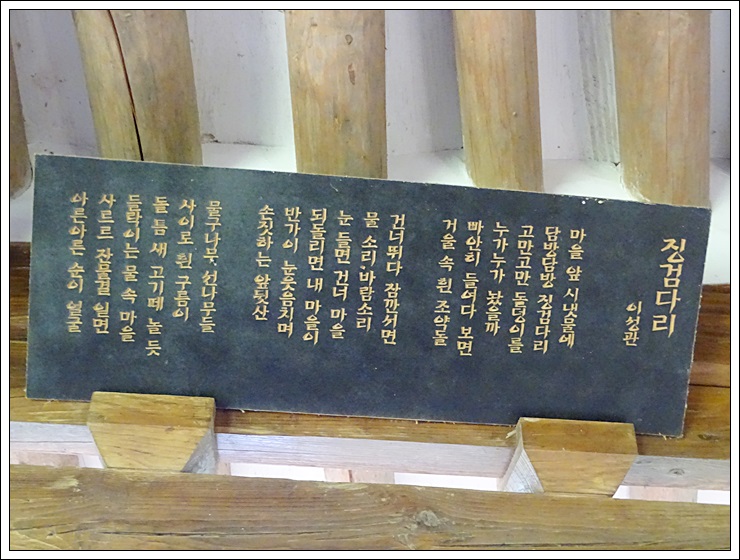 징검다리
이성관
마을 앞 시냇물에
담방담방 징검다리
고만고만 돌덩이를
누가누가 놨을까
빠안히 들여다 보면
거울 속 흰 조약돌
건너뛰다 잠깐서면
물 소리·바람소리
눈 들면 건너 마을
되돌리면 내 마을이
반가이 눈웃음치며
손짓하는 앞뒷산
물구나무 선나무들
사이로 흰 구름이
돌 틈 새 고기떼 놀 듯
들락이는 물 속 마을
사르르 잔물결 일면
아른아른 순이 얼굴